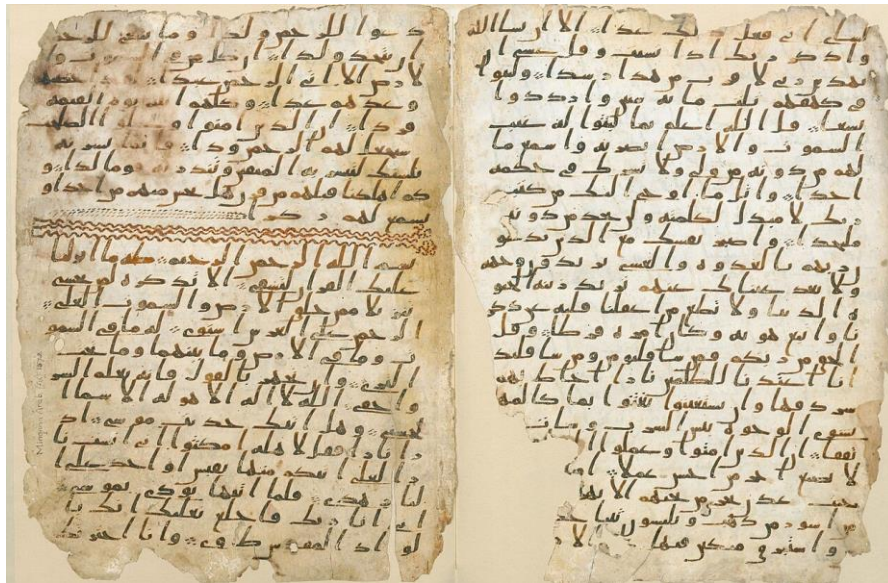 لشاي اني فعل ذلك غدا الا ان يشا الله
واذكر ربك اذا نسيت وقل عسى ا
يهدين ربي لاقرب من هذا رشدا ولبثوا
في كهفهم ثلث مائه سنين وازدادوا
تسعا قل الله اعلم بما لبثوا له غيب
السموت والارض ابصر به واسمع ما
لهم من دونه من ولي ولا يشرك في حكمه
احدا واتل ما اوحي اليك من كتب
ربك لا مبدل لكلمته ولن تجد من دونه
ملتحدا واصبر نفسك مع الذين يدعو
ن ربهم بالغدوه والعشي يريدون وجهه
ولا تعد عينك عنهم تريد زينه الحيو
ه الدنيا ولا تطع من اغفلنا قلبه عن ذكر
نا واتبع هويه وكان امره فرطا وقل
الحق من ربكم فمن شا فليومن ومن شا فليكفر
انا اعتدنا للظلمين نارا احاط بهم
سردقها وان يستغيثوا يغثوا بما كالمهل
يشوي الوجوه بئس الشرب وسات
تفقا ان الذين امنوا وعملوا
لا نضيع اجر من احسن عملا
جنت عدن تجري من تحتهم الانهر
من اسور من ذهب ويلبسون ثيابا خضر
واستبرق متكين فيها
دعوا للرحمن ولدا وما ينبغي للرحمن
ان يتخذ ولدا ان كل من في السموت و
الارض الا اتي الرحمن عبدا لقد احصهم
وعدهم عدا وكلهم اتيه يوم القيمه
فردا ان الذين امنوا وعملوا الصلحت
سيجعل لهم الرحمن ودا فانما يسرنه
بلسنك لتبشر به المتقين وتنذر به قوما لدا و
كم اهلكنا قبلهم من قرن هل تحس منهم من احد او
تسمع لهم ركزا
بسم الله الرحمن الرحيم طه ما انزلنا
عليك القران لتشقى الا تذكره لمن يخشى
تنزيلا ممن خلق الارض والسموت العلى
الرحمن على العرش استوى له ما في السمو
ت وما في الارض وما بينهما وما تحت
الثرى وان تجهر بالقول فانه يعلم السر
واخفى الله لا اله الا هو له الاسما ا
لحسنى وهل اتيك حديث موسى اذ
را نارا فقال لاهله امكثوا اني انست نا
را لعلي اتيكم منها بقبس او اجد على ا
لنار هدى فلما اتيها نودي يموسى
اني انا ربك فاخلع نعليك انك با
لواد المقدس طوى وانا اخترتك